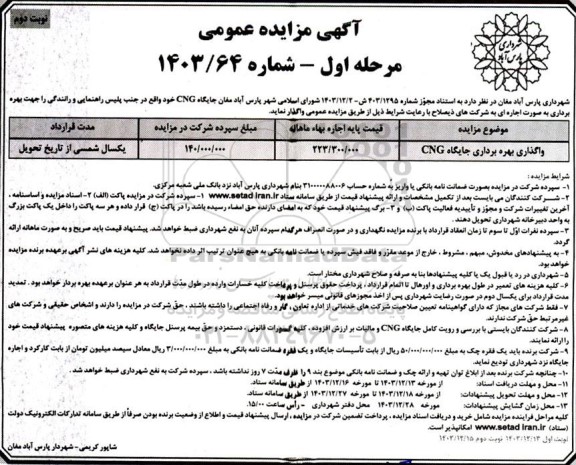 نوبت دوم
شهرداری پارس آباد
آگهی مزایده عمومی
مرحله اول – شماره ۱۴۰۳/۶۴
شهرداری پارس آباد مغان در نظر دارد به استناد مجوز شماره ۴۰۳/۱۲۹۵ ش-۱۴۰۳/۱۲/۲ شورای اسلامی شهر پارس آباد مغان جایگاه CNG خود واقع در جنب پلیس راهنمایی و رانندگی را جهت بهره
برداری به صورت اجاره ای به شرکت های ذیصلاح با رعایت شرایط ذیل از طریق مزایده عمومی واگذار نماید.
موضوع مزایده | قیمت پایه اجاره بهاء ماهانه | مبلغ سپرده شرکت در مزایده | مدت قرارداد
واگذاری بهره برداری جایگاه CNG | ۲۲۳/۳۰۰/۰۰۰ | ۱۴۰/۰۰۰/۰۰۰ | یکسال شمسی از تاریخ تحویل
شرایط مزایده:
۱- سپرده شرکت در مزایده بصورت ضمانت نامه بانکی یا واریز به شماره حساب ۳۱۰۰۰۰۰۸۸۰۰۶ بنام شهرداری پارس آباد نزد بانک ملی شعبه مرکزی.
۲- شرکت کنندگان می بایست بعد از تکمیل مشخصات و ارائه پیشنهاد قیمت از طریق سامانه ستاد www.setad iran.ir ۱- سپرده شرکت در مزایده پاکت (الف) ۲- اسناد مزایده و اساسنامه ،
آخرین تغییرات شرکت و مجوز و تأییدیه فعالیت پاکت (ب) و ۳- برگ پیشنهاد قیمت خود که به امضای دارنده حق امضاء رسیده باشد را در پاکت (ج) قرار داده و هر سه پاکت را داخل یک پاکت بزرگ
به واحد دبیرخانه شهرداری تحویل دهند.
۳- سپرده نفرات اول تا سوم تا زمان انعقاد قرارداد با برنده مزایده نگهداری و در صورت انصراف هرکدام سپرده آنان به نفع شهرداری ضبط خواهد شد. پیشنهاد قیمت باید صریح و به صورت ماهانه ارائه
گردد.
۴- به پیشنهادهای مخدوش، مبهم، مشروط، خارج از موعد مقرر و فاقد فیش سپرده یا ضمانت نامه بانکی به هیچ عنوان ترتیب اثر داده نخواهد شد. کلیه هزینه های نشر آگهی برعهده برنده مزایده
خواهد بود.
۵- شهرداری در رد یا قبول یک یا کلیه پیشنهادها بنا به صرفه و صلاح شهرداری مختار است.
۶- کلیه هزینه های تعمیر در طول بهره برداری و اورهال تا اتمام قرارداد ، پرداخت حقوق پرسنل و پرداخت کلیه خسارات وارده در طول مدت قرارداد به هر عنوان برعهده بهره بردار خواهد بود. تمدید
مدت قرارداد برای یکسال دوم در صورت رضایت شهرداری پس از اخذ مجوزهای قانونی میسر خواهد بود.
۷- فقط شرکت های مجاز که دارای گواهینامه تعیین صلاحیت شرکت های خدماتی از اداره تعاون ، کار و رفاه اجتماعی را داشته باشند ، حق شرکت در مزایده را دارند و اشخاص حقیقی و شرکت های
غیرمرتبط حق شرکت ندارند.
۸- شرکت کنندگان بایستی با بررسی و رویت کامل جایگاه CNG و مالیات بر ارزش افزوده، کلیه کسورات قانونی ، دستمزد و حق بیمه پرسنل جایگاه و کلیه هزینه های متصوره پیشنهاد قیمت خود
را ارائه نمایند.
۹- شرکت برنده باید یک فقره چک به مبلغ ۵۰/۰۰۰/۰۰۰/۰۰۰ ریال از بابت تأسیسات جایگاه و یک فقره ضمانت نامه بانکی به مبلغ ۳/۰۰۰/۰۰۰/۰۰۰ ریال معادل سیصد میلیون تومان از بابت کارکرد و اجاره
جایگاه نزد شهرداری تودیع نماید.
۱۰- چنانچه شرکت برنده بعد از ابلاغ توان تهیه و ارائه چک و ضمانت نامه بانکی موضوع بند ۹ را ظرف مدت ۷ روز نداشته باشد ، سپرده شرکت به نفع شهرداری ضبط خواهد شد.
۱۱- محل و مهلت دریافت اسناد: از مورخه ۱۴۰۳/۱۲/۱۳ تا مورخه ۱۴۰۳/۱۲/۱۶ از طریق سامانه ستاد.
۱۲- محل و مهلت تحویل پیشنهادات: از مورخه ۱۴۰۳/۱۲/۱۸ تا مورخه ۱۴۰۳/۱۲/۲۷ از طریق سامانه ستاد.
۱۳- محل زمان گشایش پیشنهادات: مورخه ۱۴۰۳/۱۲/۲۸ محل دفتر شهرداری - رأس ساعت ۱۵/۰۰.
کلیه مراحل فرآیند مزایده شامل خرید و دریافت اسناد مزایده ، پرداخت تضمین شرکت در مزایده ، ارسال پیشنهاد قیمت و اطلاع از وضعیت برنده بودن صرفاً از طریق سامانه تدارکات الکترونیک دولت
(ستاد) www.setad iran.ir امکانپذیر است.
نوبت اول ۱۴۰۳/۱۲/۱۳ نوبت دوم ۱۴۰۳/۱۲/۱۵
شاپور کریمی- شهردار پارس آباد مغان
ParsNamadData
۰۲۱-۸۸۳۴۹۶۷۰-۵